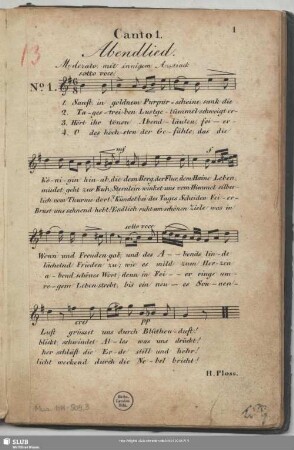 Canto 1.
1
13
Abendlied.
Moderato mit innigem Ausdruck
sotto voce
No 1.
1. Sanft in goldnem Purpur-scheine sank die
2. Ta-ges-trei-ben Lustge-tümmel schweigt er-
3. Hört ihr tönen Abend-läuten: fei-er-
4. O des höch-sten der Ge-fühle, das die
mf
Kö-ni-gin hin-ab, die dem Berg, der Flur, dem Haine Leben,
müdet geht zur Ruh, Sternlein winkt aus vom Himmel silber
lich vom Thurme dort? Kündet hin des Tages Scheiden Fei-er-
Brust uns schnend hebt! Endlich zum schönen Ziele was in
sotto voce
Wonn und Freuden gab, und des A-bends linde
lächelnd Frieden zu; wie er mild zum Her-zen
a-bend schönes Wort, denn in Fei-er rings um-
re-gem Leben strebt, bis ein neu-es Sonnen-
cresc pp
Luft grüsset uns durch Blüthen-duft!
blickt schwindet Al-les was uns drückt!
her schläft die Er-de still und hehr!
licht weckend durch die Ne-bel bricht!
H. Floss.
SLUB